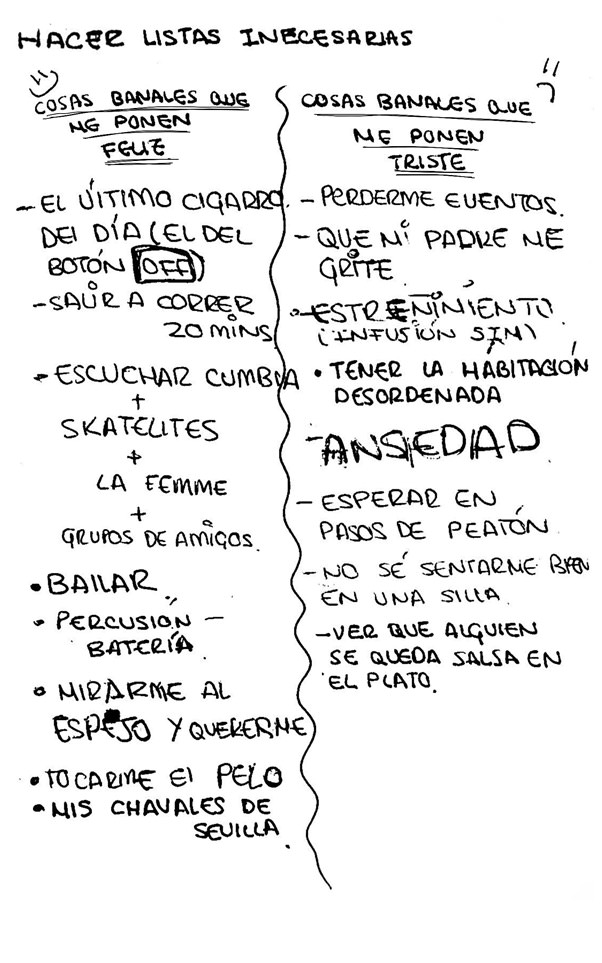 HACER LISTAS INECESARIAS
COSAS BANALES QUE
ME PONEN
FELIZ
- EL ÚLTIMO CIGARRO
DEl DÍA (EL DEL
BOTÓN OFF)
- SALIR A CORRER
20 MINS
- ESCUCHAR CUMBIA
+
SKATELITES
+
LA FEMME
+
GRUPOS DE AMIGOS.
• BAILAR
• PERCUSIÓN -
BATERÍA.
• MIRARME AL
ESPEJO Y QUERERME
• TOCARME El PELO
• MIS CHAVALES DE
SEVILLA.
COSAS BANALES QUE
ME PONEN
TRISTE
- PERDERME EVENTOS.
- QUE MI PADRE ME
GRITE
- ESTREÑIMIENTO
(INFUSIÓN SIN)
• TENER LA HABITACIÓN
DESORDENADA
- ANSIEDAD
- ESPERAR EN
PASOS DE PEATÓN
- NO SÉ SENTARME BIEN
EN UNA SILLA.
- VER QUE ALGUIEN
SE QUEDA SALSA EN
EL PLATO.